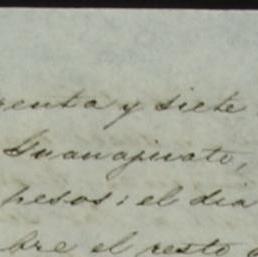 renta y siete
Guanajuato,
pesos; el dia
bre el resto